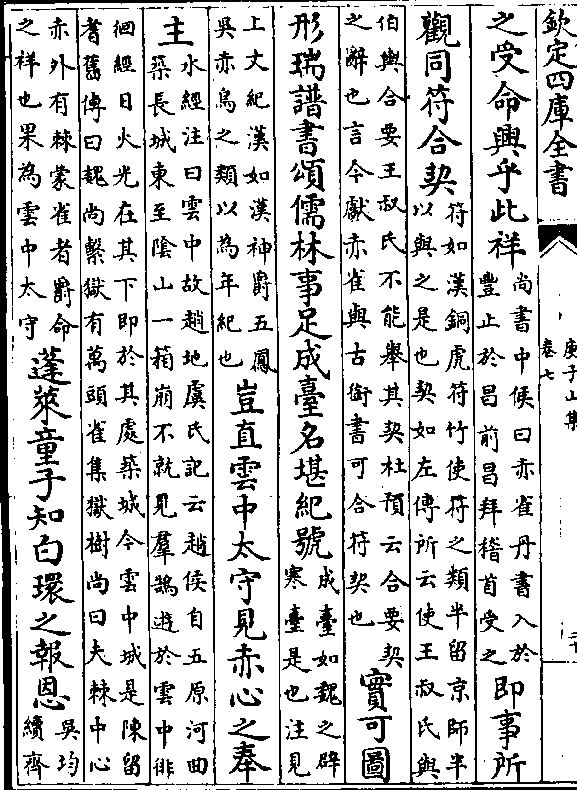 欽定四庫全書
庾子山集
卷七
之受命興乎此祥
尚書中候曰赤雀丹書入於
豐止於昌前昌拜稽首受之
即事所
觀同符合契
符如漢銅虎符竹使符之類半留京師半
以與之是也契如左傳所云使王叔氏與
伯輿合要王叔氏不能舉其契杜預云合要契
之辭也言今獻赤雀與古銜書可合符契也
實可圖
形瑞譜書頌儒林事足成臺名堪紀號
成臺如魏之辟
寒臺是也注見
上文紀漢如漢神爵五鳳
吳赤烏之類以為年紀也
豈直雲中太守見赤心之奉
主
水經注曰雲中故趙地虞氏記云趙侯自五原河曲
築長城東至陰山一箱崩不就見羣鵠遊於雲中徘
徊經日火光在其下即於其處築城今雲中城是陳留
耆舊傳曰魏尚繫獄有萬頭雀集獄樹尚曰夫棘中心
赤外有棘蒙雀者爵命
之祥也果為雲中太守
蓬萊童子知白環之報恩
吳均
續齊